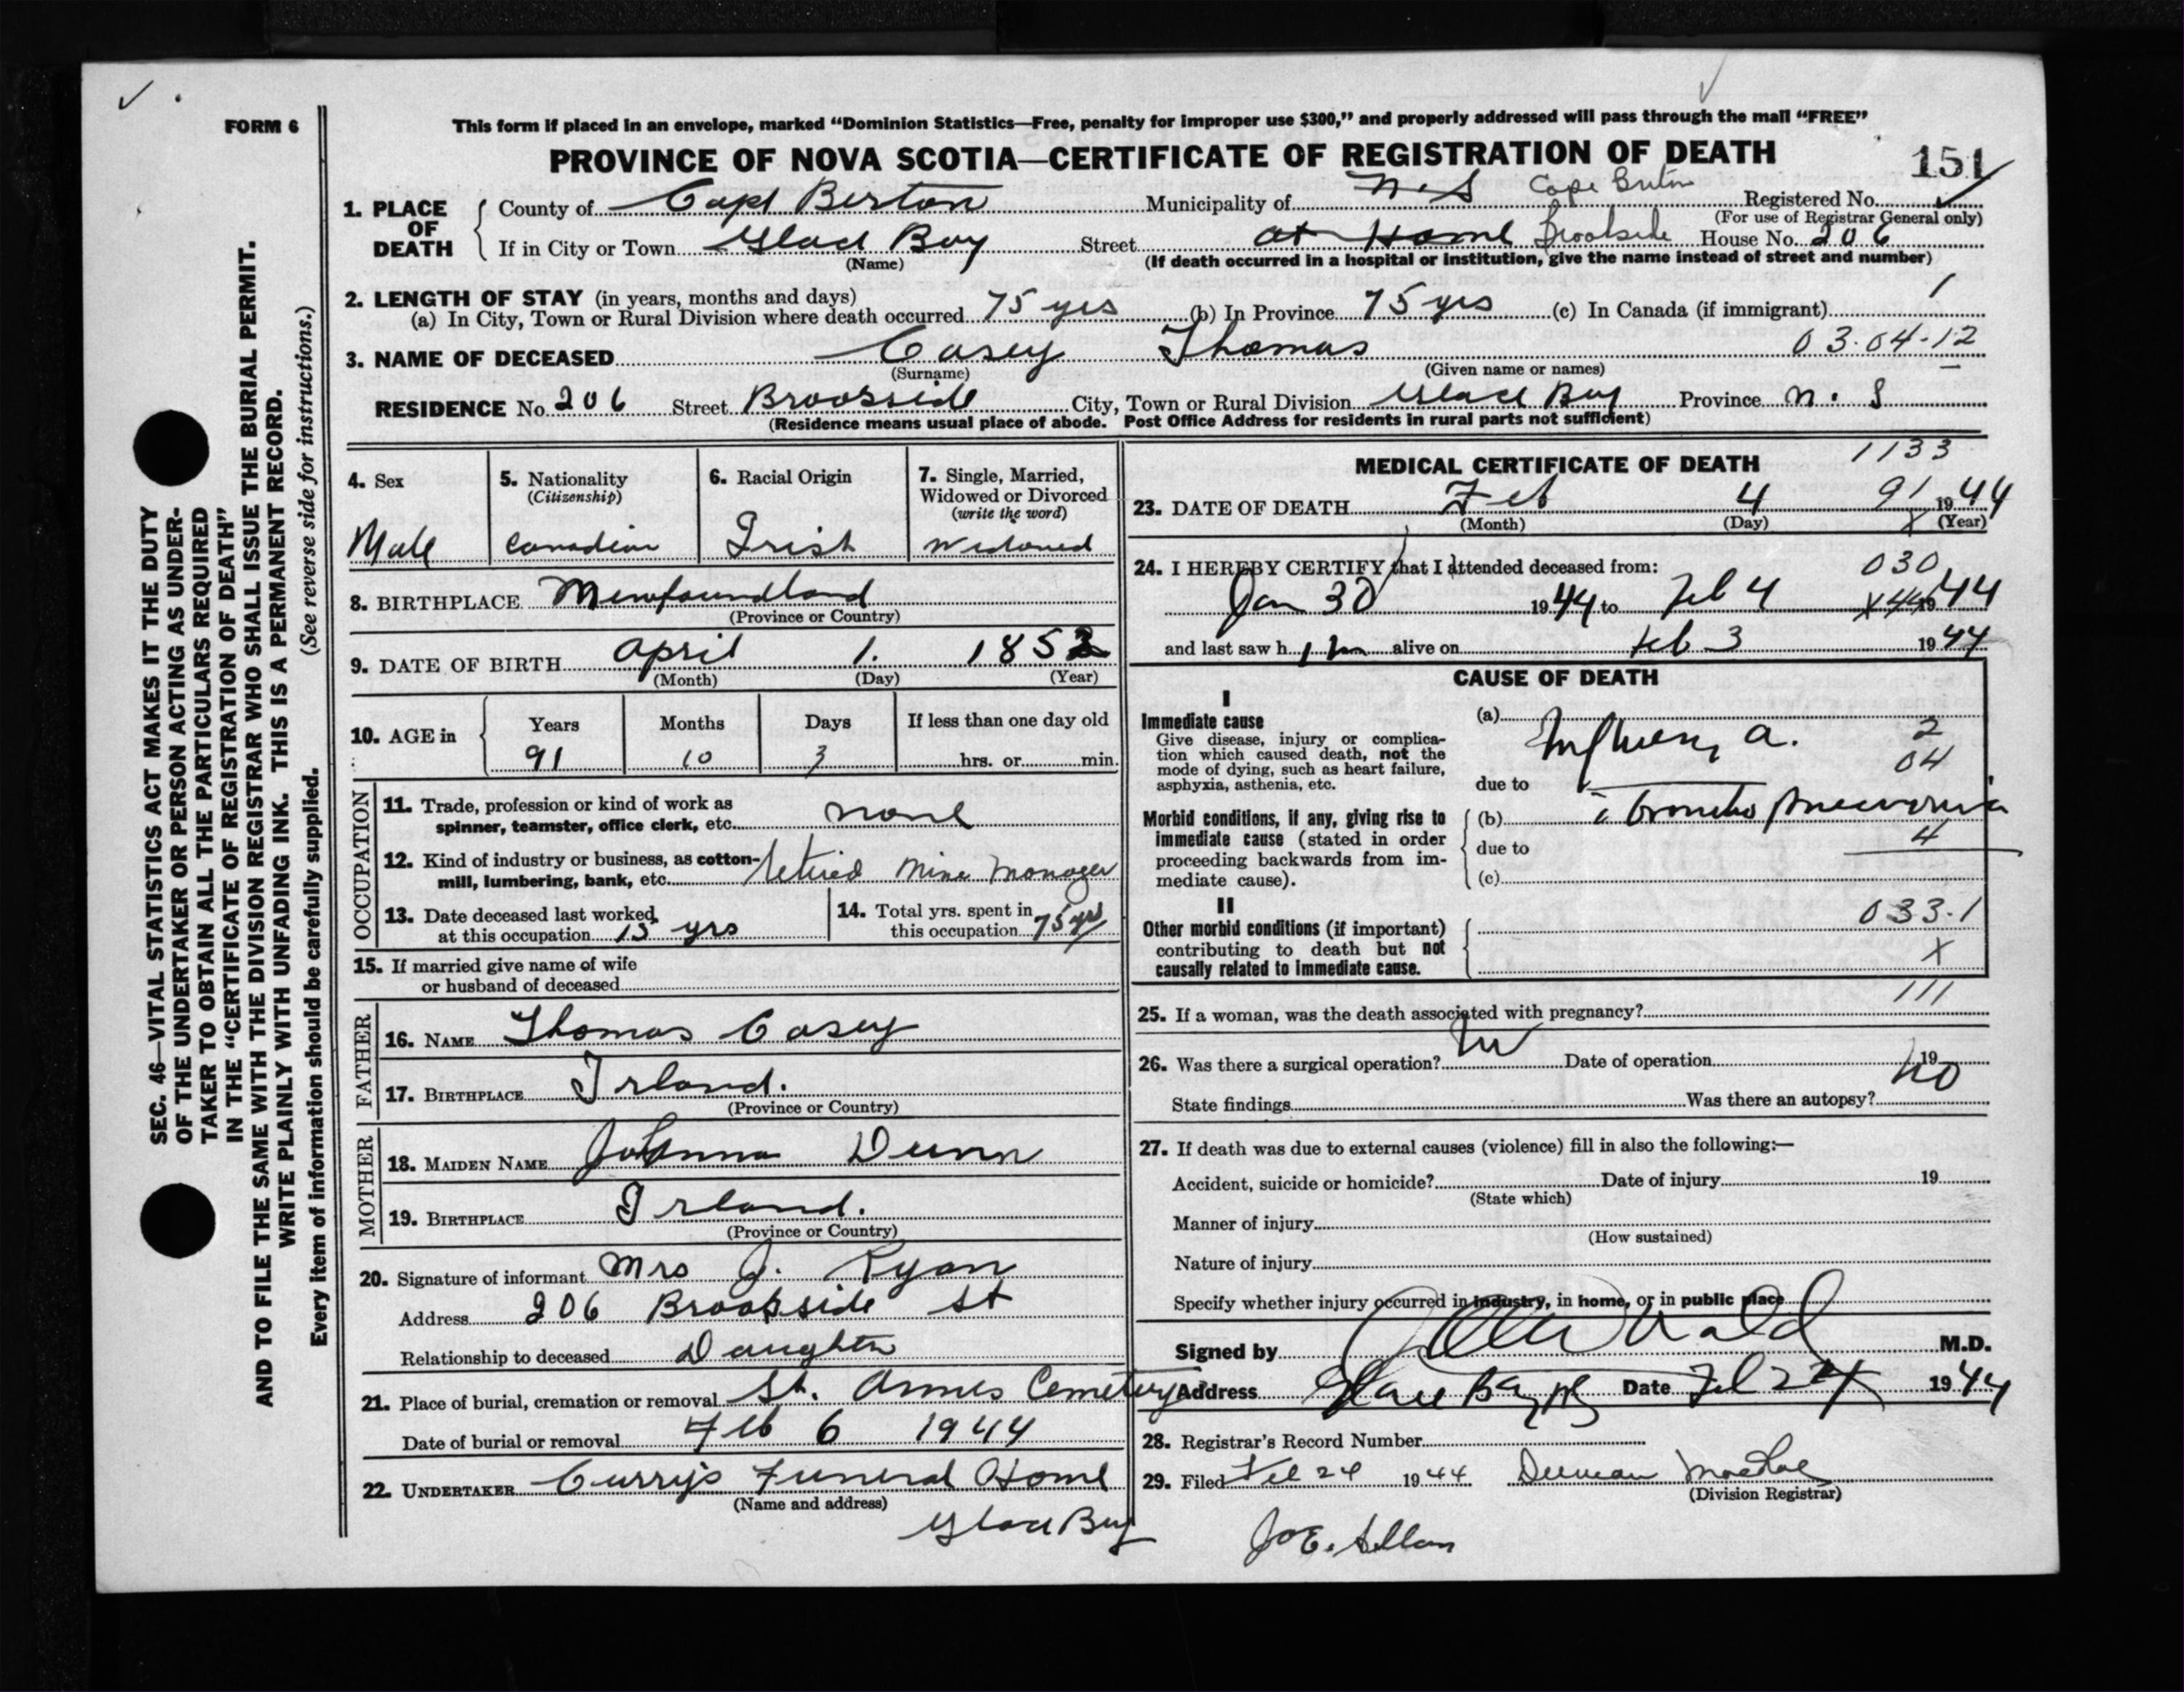 FORM 6
This form if placed in an envelope, marked “Dominion Statistics—Free, penalty for improper use $300,” and properly addressed will pass through the mail “FREE”
PROVINCE OF NOVA SCOTIA—CERTIFICATE OF REGISTRATION OF DEATH 151
1. PLACE OF DEATH County of Cape Berton Municipality of N.S Cape Breton Registered No.
(For use of Registrar General only)
If in City or Town Glace Bay Street at Home Brookside House No. 206
(Name) (If death occurred in a hospital or institution, give the name instead of street and number)
2. LENGTH OF STAY (in years, months and days) 1
(a) In City, Town or Rural Division where death occurred 75 yrs (b) In Province 75 yrs (c) In Canada (if immigrant)
3. NAME OF DECEASED Casey Thomas 03.04-12
(Surname) (Given name or names)
RESIDENCE No. 206 Street Brookside City, Town or Rural Division Glace Bay Province N. S
(Residence means usual place of abode. Post Office Address for residents in rural parts not sufficient)
4. Sex 5. Nationality (Citizenship) 6. Racial Origin 7. Single, Married, Widowed or Divorced (write the word)
Male Canadian Irish Widowed
8. BIRTHPLACE Newfoundland
(Province or Country)
9. DATE OF BIRTH April 1. 1852
(Month) (Day) (Year)
10. AGE in Years Months Days If less than one day old
91 10 3 hrs. or min.
OCCUPATION
11. Trade, profession or kind of work as
spinner, teamster, office clerk, etc. none
12. Kind of industry or business, as cotton-
mill, lumbering, bank, etc. retired Mine Manager
13. Date deceased last worked
at this occupation 15 yrs
14. Total yrs. spent in
this occupation 75 yrs
15. If married give name of wife
or husband of deceased
FATHER
16. NAME Thomas Casey
17. BIRTHPLACE Irland.
(Province or Country)
MOTHER
18. MAIDEN NAME Johanna Dunn
19. BIRTHPLACE Irland.
(Province or Country)
20. Signature of informant Mrs J. Ryan
Address 206 Brookside St
Relationship to deceased Daughter
21. Place of burial, cremation or removal St. Annes Cemetery
Date of burial or removal Feb 6 1944
22. UNDERTAKER Curry's Funeral Home
(Name and address)
Glace Bay
MEDICAL CERTIFICATE OF DEATH 1133
23. DATE OF DEATH Feb 4 91 1944
(Month) (Day) X (Year)
24. I HEREBY CERTIFY that I attended deceased from: 030
Jan 30 1944 to Feb 4 1944
and last saw him alive on Feb 3 1944
CAUSE OF DEATH
I
Immediate cause
Give disease, injury or complica-
tion which caused death, not the
mode of dying, such as heart failure,
asphyxia, asthenia, etc.
(a) Influenza. 2
04
due to
Morbid conditions, if any, giving rise to
immediate cause (stated in order
proceeding backwards from im-
mediate cause).
(b) Broncho pneumonia
due to 4
(c)
II
Other morbid conditions (if important)
contributing to death but not
causally related to immediate cause.
033.1
X
111
25. If a woman, was the death associated with pregnancy?
26. Was there a surgical operation? Date of operation 19
State findings Was there an autopsy? no
27. If death was due to external causes (violence) fill in also the following:—
Accident, suicide or homicide? Date of injury 19
(State which)
Manner of injury
(How sustained)
Nature of injury
Specify whether injury occurred in industry, in home, or in public place
Signed by M.D.
Address Glace Bay NS Date Feb 24 1944
28. Registrar's Record Number
29. Filed Feb 24 1944 Duncan
(Division Registrar)
SEC. 46—VITAL STATISTICS ACT MAKES IT THE DUTY
OF THE UNDERTAKER OR PERSON ACTING AS UNDER-
TAKER TO OBTAIN ALL THE PARTICULARS REQUIRED
IN THE “CERTIFICATE OF REGISTRATION OF DEATH”
AND TO FILE THE SAME WITH THE DIVISION REGISTRAR WHO SHALL ISSUE THE BURIAL PERMIT.
WRITE PLAINLY WITH UNFADING INK. THIS IS A PERMANENT RECORD.
Every item of information should be carefully supplied. (See reverse side for instructions.)